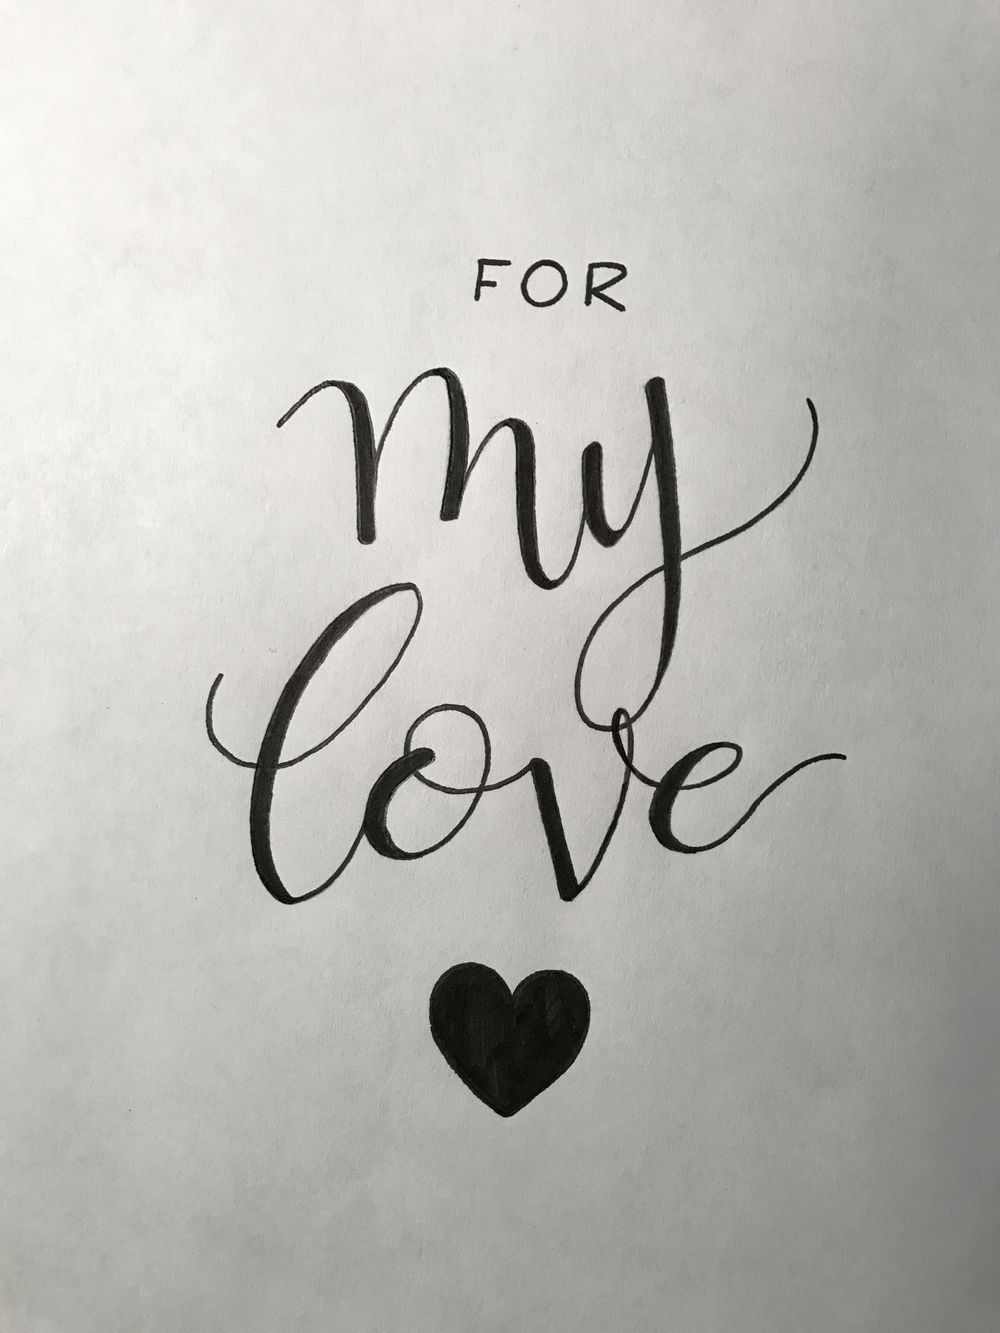 FOR
my
love